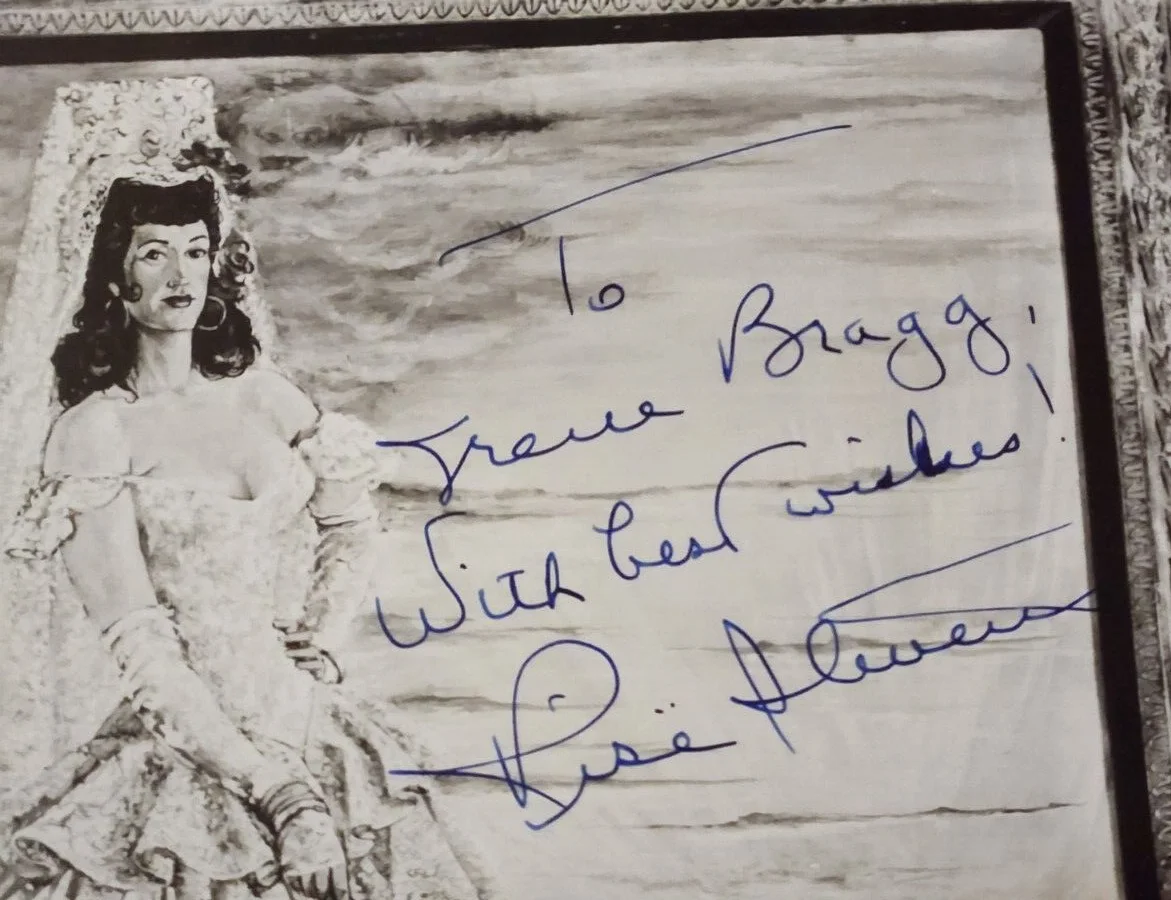 To
Irene Bragg,
With best wishes!
Risë Stevens